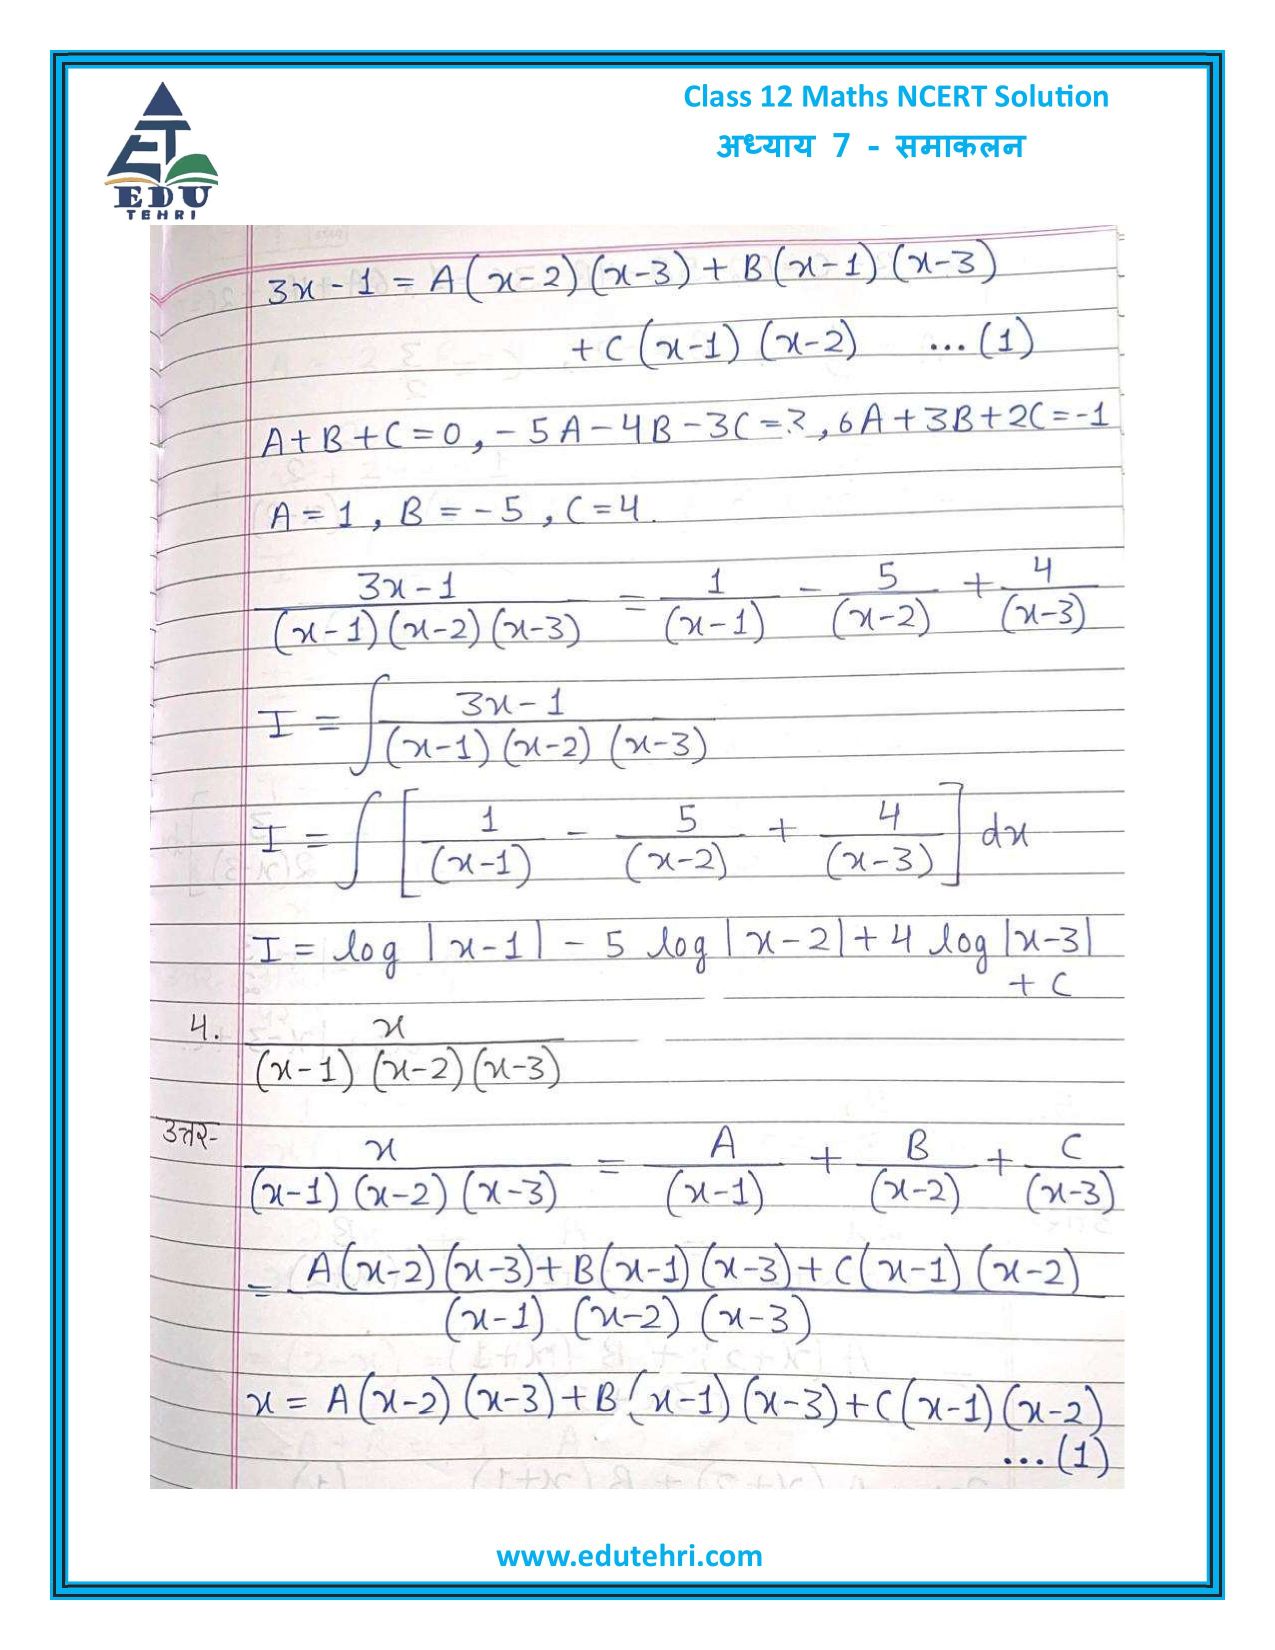 Class 12 Maths NCERT Solution
अध्याय 7 - समाकलन
EDU
TEHRI
3x - 1 = A(x-2)(x-3) + B(x-1)(x-3)
+ C(x-1)(x-2) ...(1)
A+B+C=0, -5A-4B-3C=3, 6A+3B+2C=-1
A=1, B=-5, C=4.
3x-1 / (x-1)(x-2)(x-3) = 1/(x-1) - 5/(x-2) + 4/(x-3)
I = ∫ 3x-1 / (x-1)(x-2)(x-3)
I = ∫ [1/(x-1) - 5/(x-2) + 4/(x-3)] dx
I = log|x-1| - 5 log|x-2| + 4 log|x-3|
+ C
4. x / (x-1)(x-2)(x-3)
उत्तर- x / (x-1)(x-2)(x-3) = A/(x-1) + B/(x-2) + C/(x-3)
= A(x-2)(x-3)+B(x-1)(x-3)+C(x-1)(x-2) / (x-1)(x-2)(x-3)
x = A(x-2)(x-3)+B(x-1)(x-3)+C(x-1)(x-2)
...(1)
www.edutehri.com